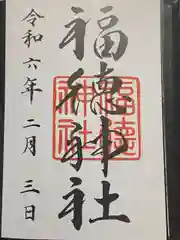 福德神社
福徳神社
令和六年二月三日